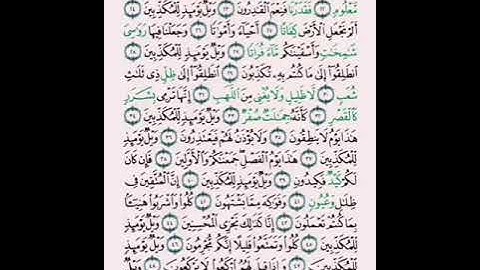 مَّعْلُومٍ ٢٢ فَقَدَرْنَا فَنِعْمَ الْقَادِرُونَ ٢٣ وَيْلٌ يَوْمَئِذٍ لِّلْمُكَذِّبِينَ ٢٤
أَلَمْ نَجْعَلِ الْأَرْضَ كِفَاتًا ٢٥ أَحْيَاءً وَأَمْوَاتًا ٢٦ وَجَعَلْنَا فِيهَا رَوَاسِيَ
شَامِخَاتٍ وَأَسْقَيْنَاكُم مَّاءً فُرَاتًا ٢٧ وَيْلٌ يَوْمَئِذٍ لِّلْمُكَذِّبِينَ ٢٨
انطَلِقُوا إِلَىٰ مَا كُنتُم بِهِ تُكَذِّبُونَ ٢٩ انطَلِقُوا إِلَىٰ ظِلٍّ ذِي ثَلَاثِ
شُعَبٍ ٣٠ لَّا ظَلِيلٍ وَلَا يُغْنِي مِنَ اللَّهَبِ ٣١ إِنَّهَا تَرْمِي بِشَرَرٍ
كَالْقَصْرِ ٣٢ كَأَنَّهُ جِمَالَتٌ صُفْرٌ ٣٣ وَيْلٌ يَوْمَئِذٍ لِّلْمُكَذِّبِينَ ٣٤
هَٰذَا يَوْمُ لَا يَنطِقُونَ ٣٥ وَلَا يُؤْذَنُ لَهُمْ فَيَعْتَذِرُونَ ٣٦ وَيْلٌ يَوْمَئِذٍ
لِّلْمُكَذِّبِينَ ٣٧ هَٰذَا يَوْمُ الْفَصْلِ جَمَعْنَاكُمْ وَالْأَوَّلِينَ ٣٨ فَإِن كَانَ
لَكُمْ كَيْدٌ فَكِيدُونِ ٣٩ وَيْلٌ يَوْمَئِذٍ لِّلْمُكَذِّبِينَ ٤٠ إِنَّ الْمُتَّقِينَ فِي
ظِلَالٍ وَعُيُونٍ ٤١ وَفَوَاكِهَ مِمَّا يَشْتَهُونَ ٤٢ كُلُوا وَاشْرَبُوا هَنِيئًا
بِمَا كُنتُمْ تَعْمَلُونَ ٤٣ إِنَّا كَذَٰلِكَ نَجْزِي الْمُحْسِنِينَ ٤٤ وَيْلٌ يَوْمَئِذٍ
لِّلْمُكَذِّبِينَ ٤٥ كُلُوا وَتَمَتَّعُوا قَلِيلًا إِنَّكُم مُّجْرِمُونَ ٤٦ وَيْلٌ يَوْمَئِذٍ
لِّلْمُكَذِّبِينَ ٤٧ وَإِذَا قِيلَ لَهُمُ ارْكَعُوا لَا يَرْكَعُونَ ٤٨ وَيْلٌ